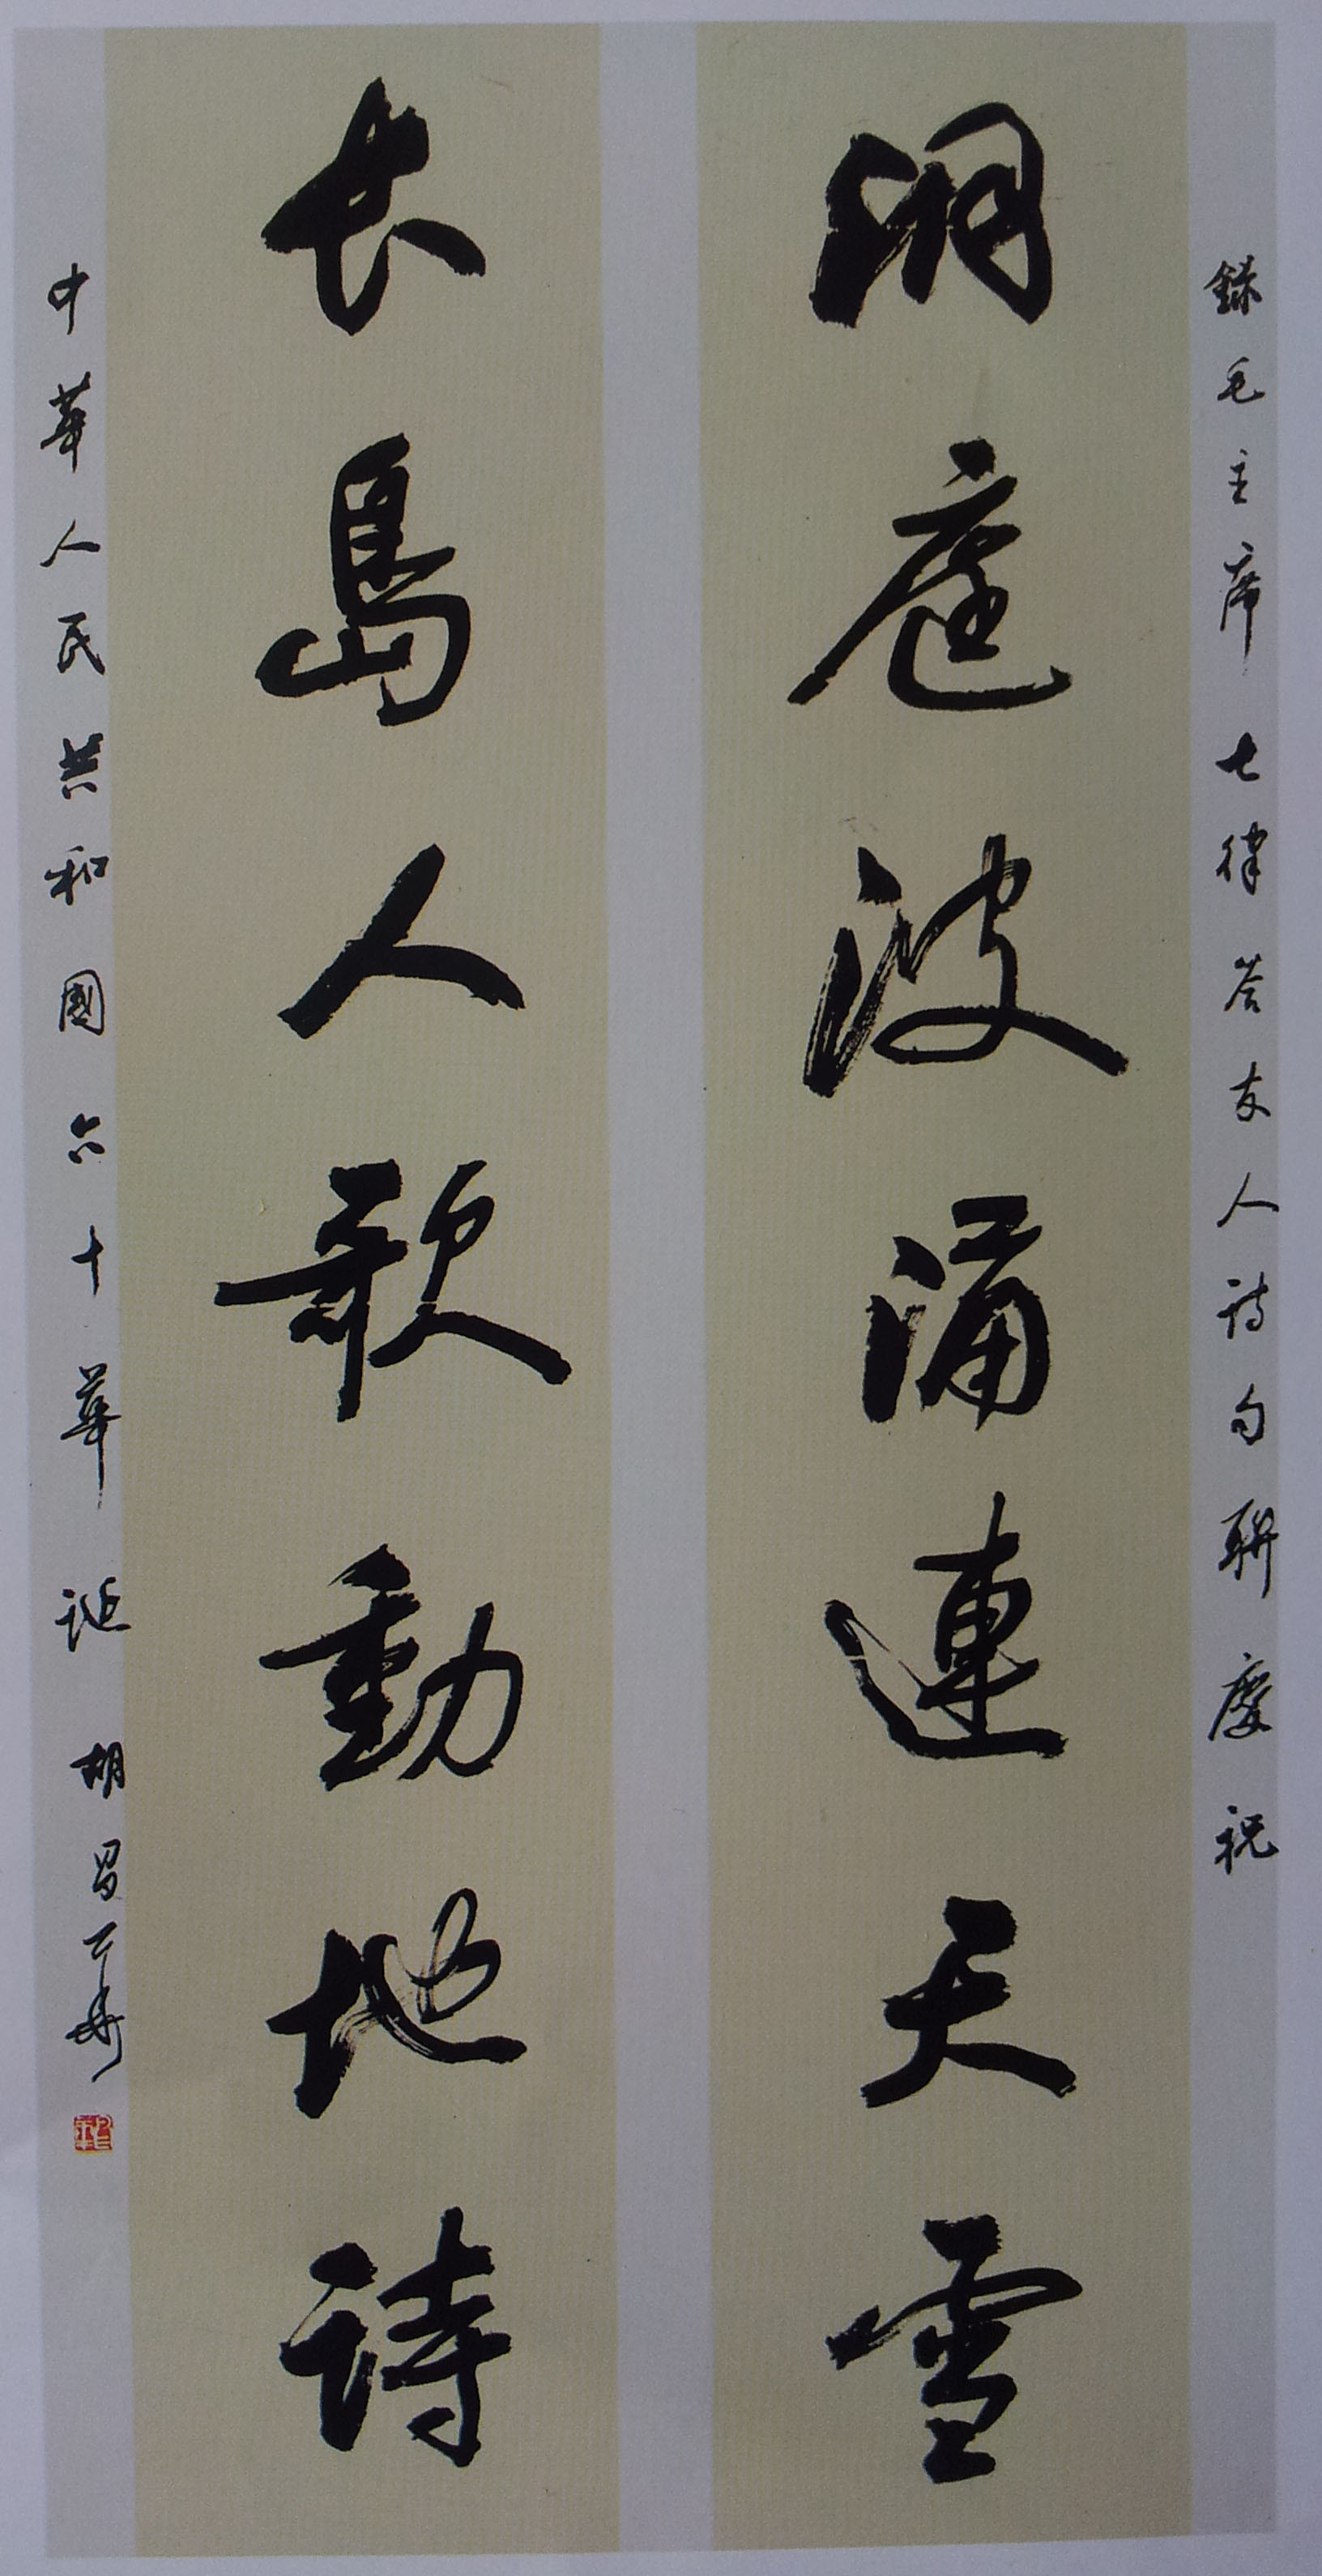 錄毛主席七律答友人诗句聯慶祝
洞庭波涌連天雪
長島人歌動地詩
中華人民共和國六十華诞 胡昌華